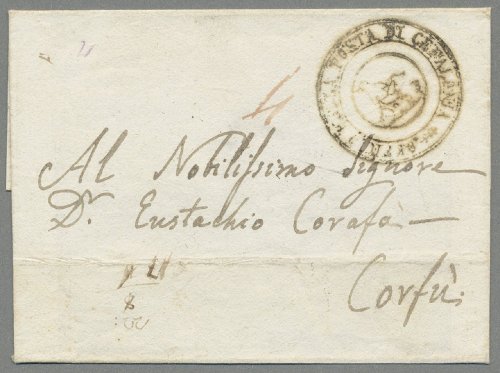 POSTA DI CEFALONIA
4
Al Nobilissimo Signore
Dr. Eustachio Corafà
Corfù.